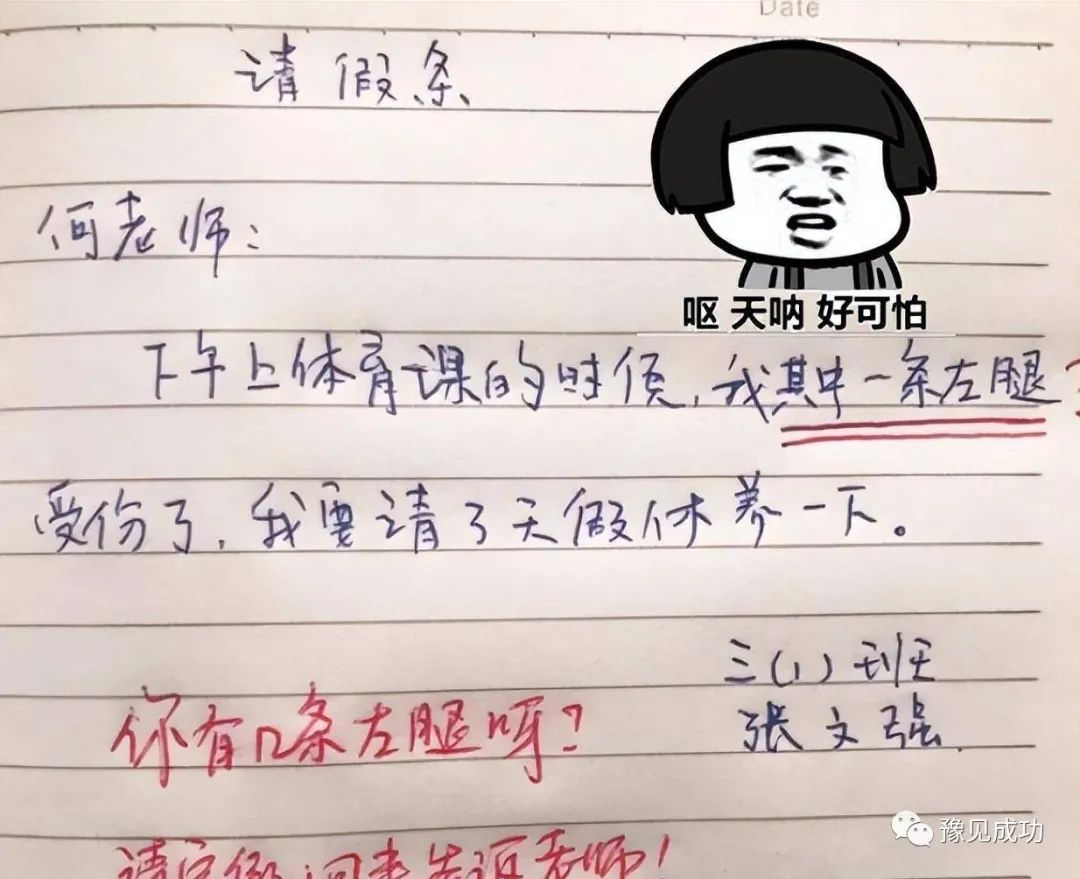 Date
请假条
何老师：
呕 天呐 好可怕
下午上体育课的时候，我其中一条左腿？
受伤了，我要请3天假休养一下。
三（1）班
张文强
你有几条左腿呀？
请完假，回来告诉老师！
豫见成功